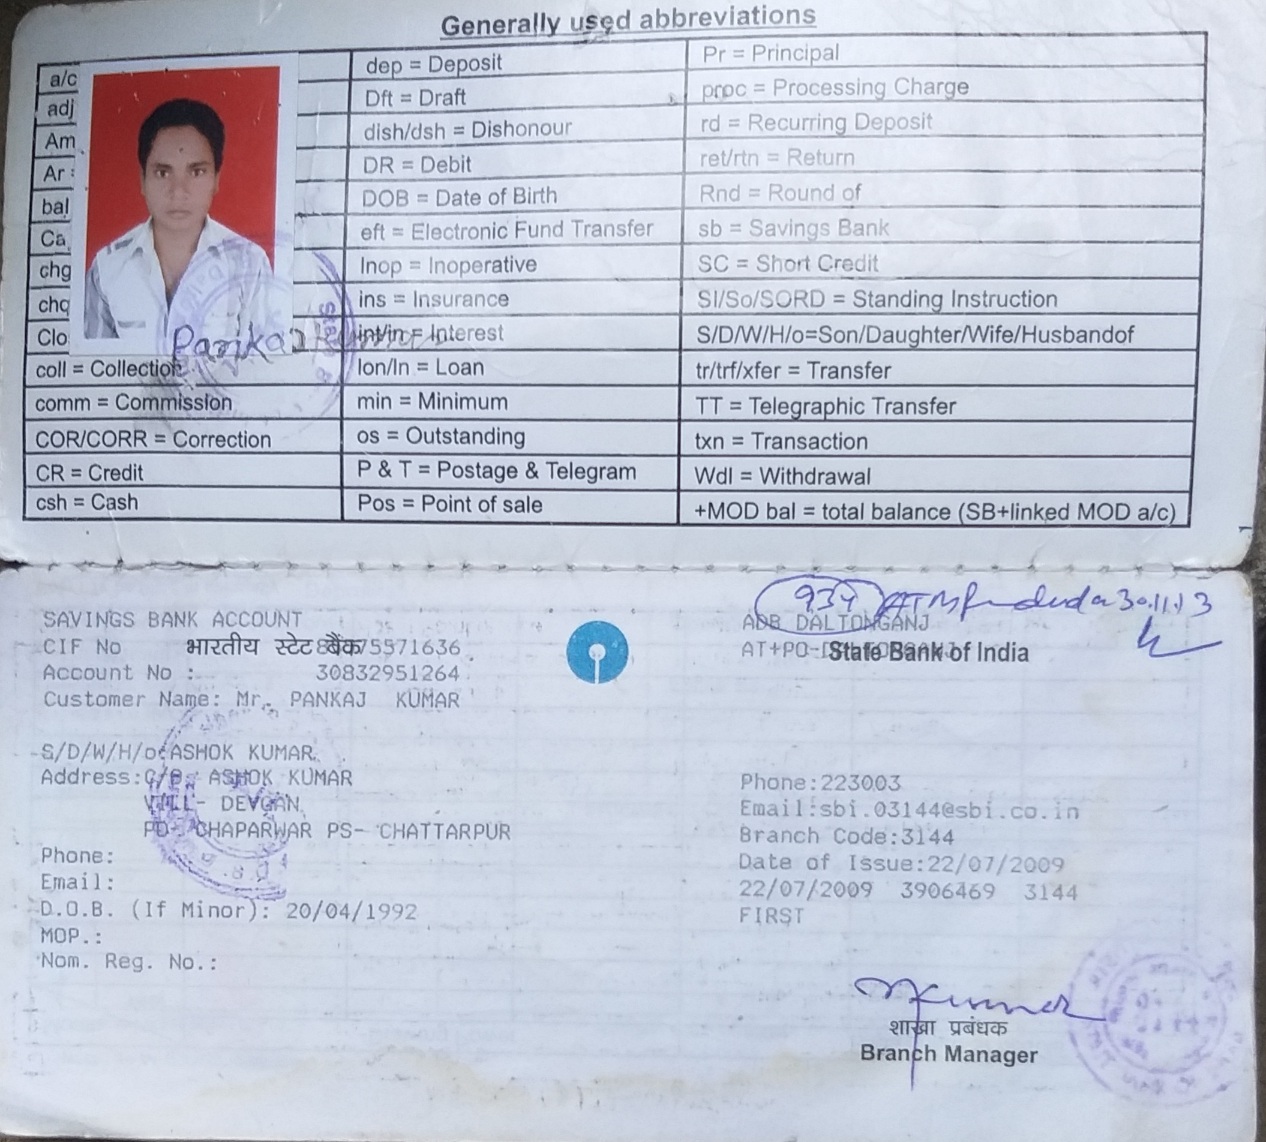 Generally used abbreviations
a/c dep = Deposit Pr = Principal
adj Dft = Draft proc = Processing Charge
Am dish/dsh = Dishonour rd = Recurring Deposit
Ar = DR = Debit ret/rtn = Return
bal DOB = Date of Birth Rnd = Round of
Ca eft = Electronic Fund Transfer sb = Savings Bank
chg Inop = Inoperative SC = Short Credit
chq ins = Insurance SI/So/SORD = Standing Instruction
Clo int/in = Interest S/D/W/H/o=Son/Daughter/Wife/Husbandof
coll = Collection lon/ln = Loan tr/trf/xfer = Transfer
comm = Commission min = Minimum TT = Telegraphic Transfer
COR/CORR = Correction os = Outstanding txn = Transaction
CR = Credit P & T = Postage & Telegram Wdl = Withdrawal
csh = Cash Pos = Point of sale +MOD bal = total balance (SB+linked MOD a/c)
Pankaj Kumar
934 ATM 30.11.13
SAVINGS BANK ACCOUNT ADB DALTONGANJ
CIF No भारतीय स्टेट बैंक 75571636 AT+PO- State Bank of India
Account No : 30832951264
Customer Name: Mr. PANKAJ KUMAR
S/D/W/H/o: ASHOK KUMAR
Address: ASHOK KUMAR Phone:223003
VILL- DEVGAN Email:sbi.03144@sbi.co.in
PO- CHAPARWAR PS- CHATTARPUR Branch Code:3144
Phone: Date of Issue:22/07/2009
Email: 22/07/2009 3906469 3144
D.O.B. (If Minor): 20/04/1992 FIRST
MOP.:
Nom. Reg. No.:
शाखा प्रबंधक
Branch Manager